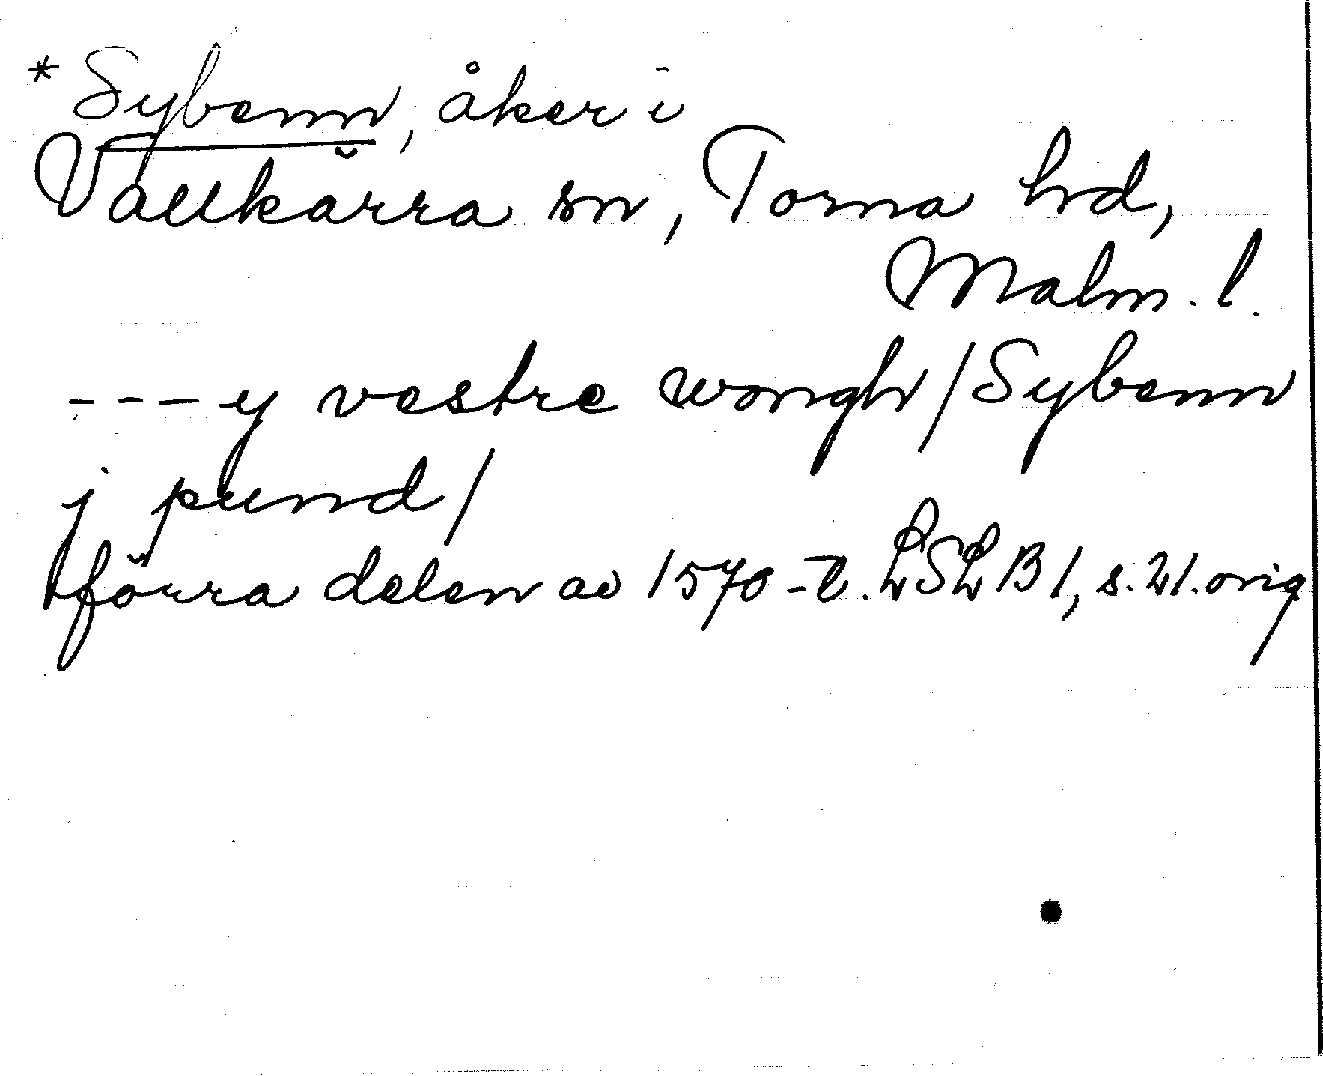 * Sybenn, åker i
Vallkärra sn, Torna hd,
Malm. l.
---y vestre wongh/Sybenn
j pund/
förra delen av 1570-t. LSLB1, s.21.orig